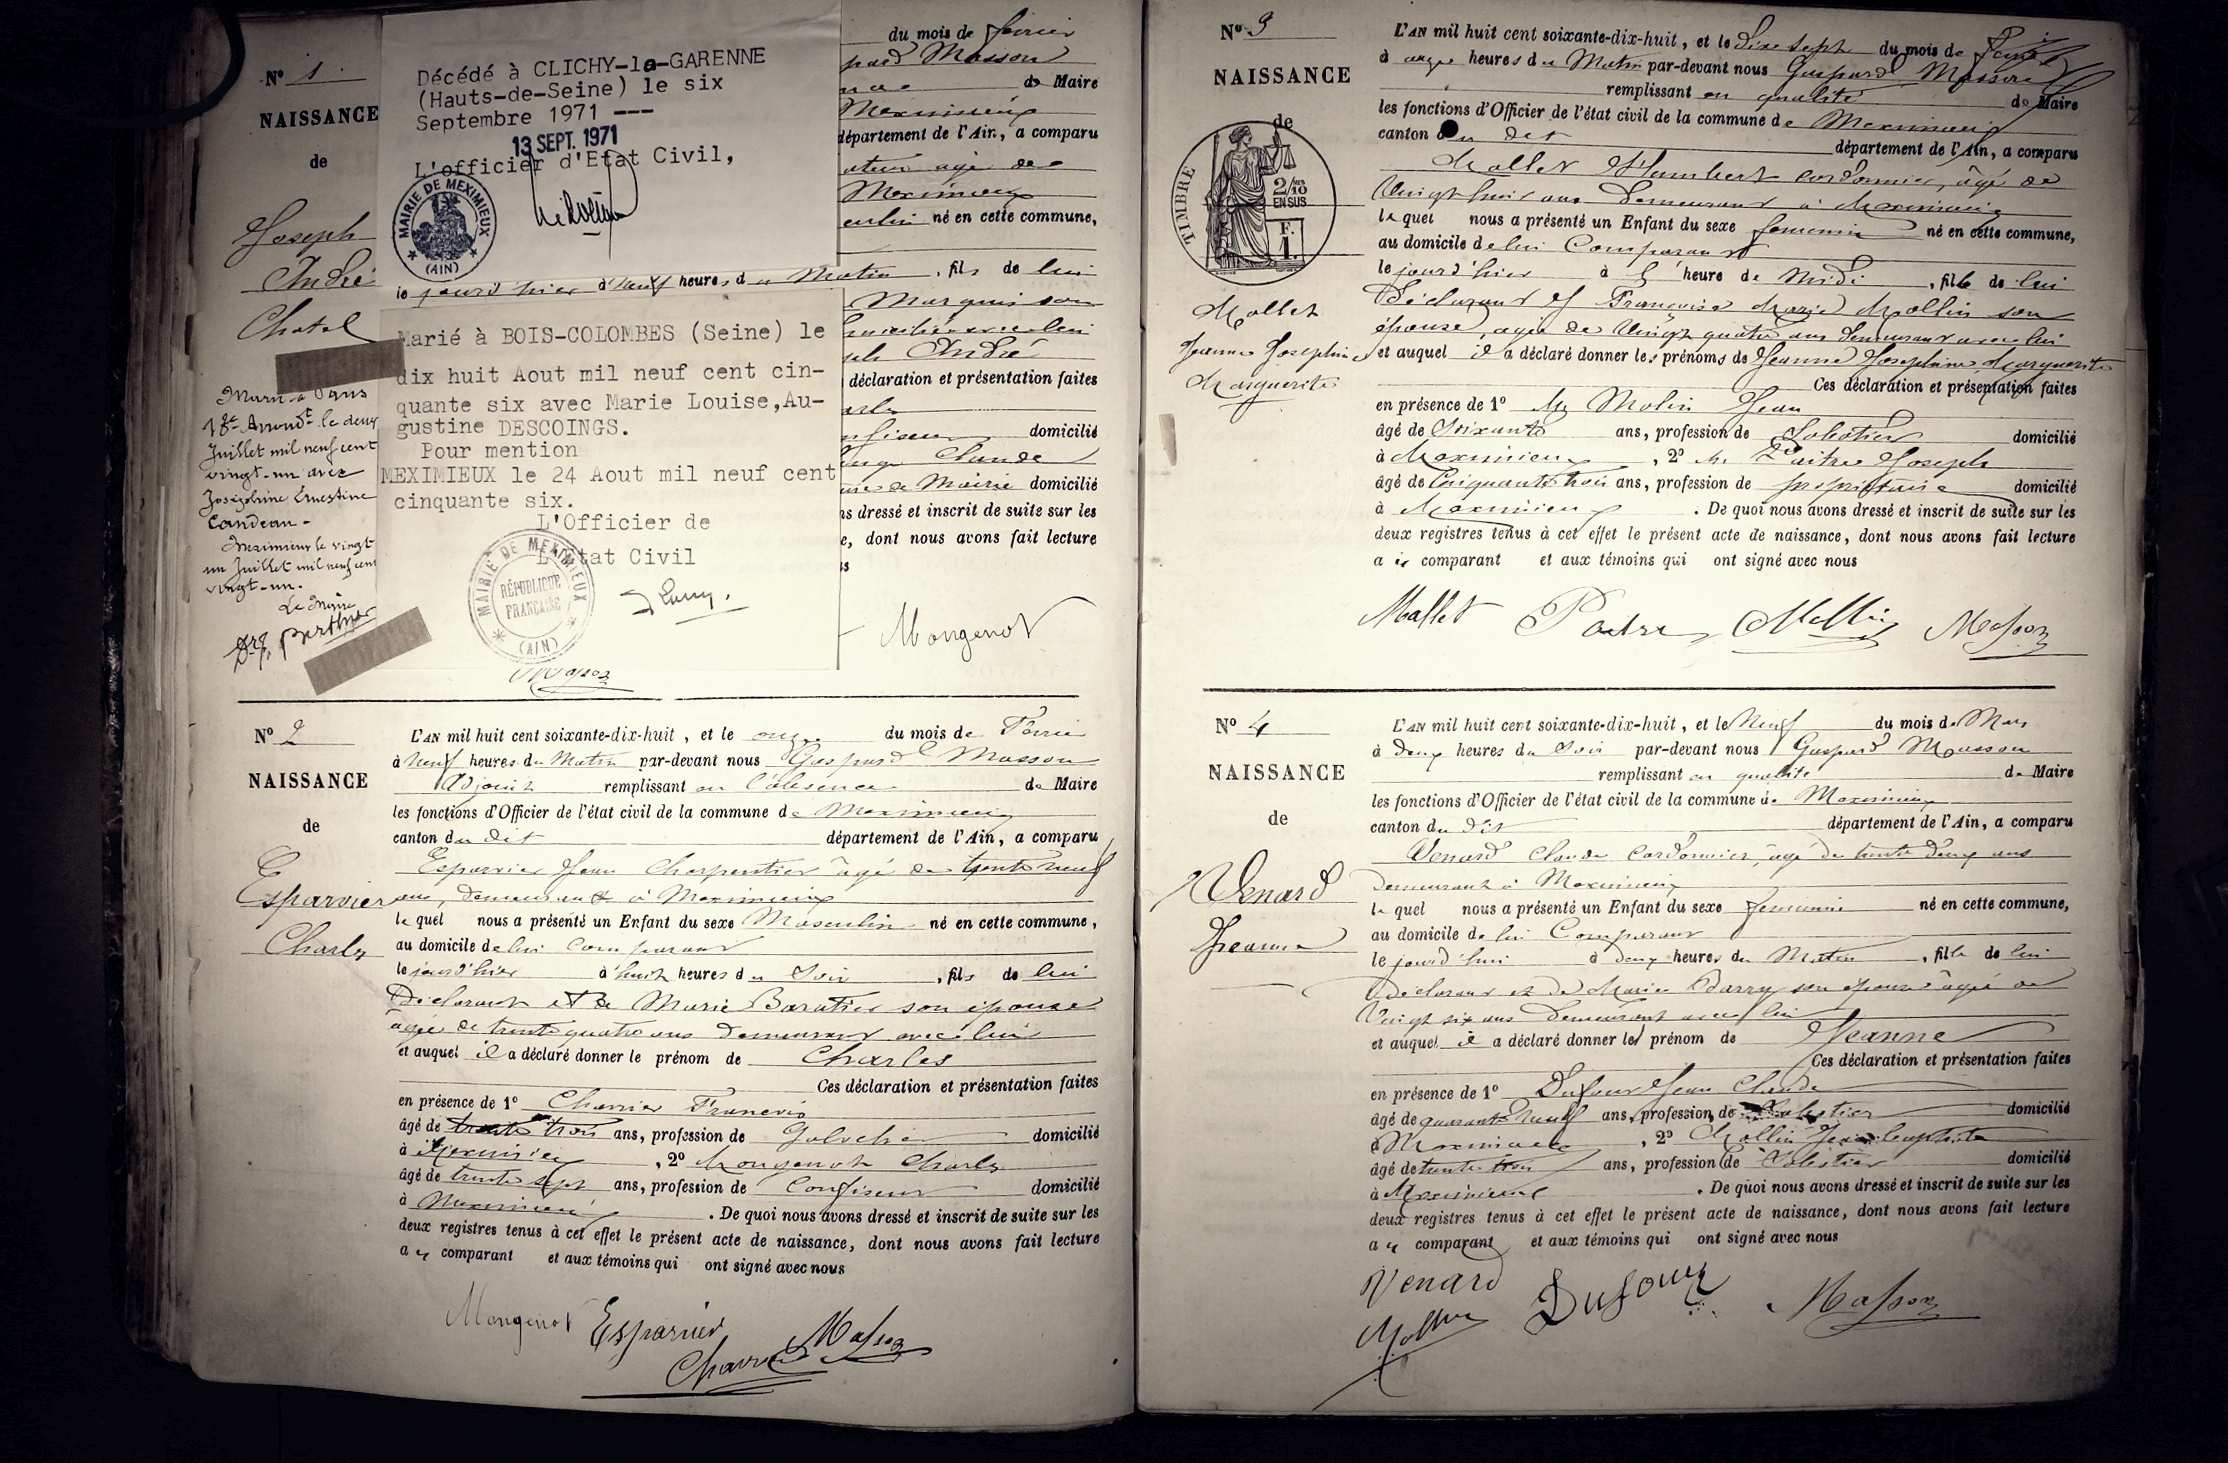 Nº 1
NAISSANCE
de
Joseph
André
Chatel
Marié à Paris
18e Arrondt le deux
Juillet mil neuf cent
vingt-un avec
Joséphine Ernestine
Candeau -
Meximieux le vingt
un Juillet mil neuf cent
vingt-un.
Le Maire
Décédé à CLICHY-la-GARENNE
(Hauts-de-Seine) le six
Septembre 1971 ---
13 SEPT. 1971
L'officier d'Etat Civil,
MAIRIE DE MEXIMIEUX
(AIN)
du mois de février
Masson
de Maire
Meximieux
département de l'Ain, a comparu
âgé de
Meximieux
né en cette commune,
le jourd'hier à neuf heures du Matin, fils de lui
Marquis son
lui
André
déclaration et présentation faites
domicilié
Claude
de Mairie domicilié
s dressé et inscrit de suite sur les
e, dont nous avons fait lecture
Marié à BOIS-COLOMBES (Seine) le
dix huit Aout mil neuf cent cin-
quante six avec Marie Louise,Au-
gustine DESCOINGS.
Pour mention
MEXIMIEUX le 24 Aout mil neuf cent
cinquante six.
L'Officier de
L'Etat Civil
MAIRIE DE MEXIMIEUX
RÉPUBLIQUE
FRANÇAISE
(AIN)
Mongenot
Masson
Nº 2
NAISSANCE
de
Esparvier
Charles
L'AN mil huit cent soixante-dix-huit, et le onze du mois de Février
à neuf heures du Matin par-devant nous Gaspard Masson
Adjoint remplissant en l'absence de Maire
les fonctions d'Officier de l'état civil de la commune de Meximieux
canton du dit département de l'Ain, a comparu
Esparvier Jean Charpentier âgé de trente neuf
ans, demeurant à Meximieux
lequel nous a présenté un Enfant du sexe Masculin né en cette commune,
au domicile de lui Comparant
le jourd'hier à huit heures du Soir, fils de lui
Déclarant et de Marie Baratier son épouse
âgée de trente quatre ans demeurant avec lui
et auquel il a déclaré donner le prénom de Charles
Ces déclaration et présentation faites
en présence de 1º Charrier François
âgé de trente trois ans, profession de domicilié
à Meximieux, 2º Mongenot Charles
âgé de trente sept ans, profession de Confiseur domicilié
à Meximieux. De quoi nous avons dressé et inscrit de suite sur les
deux registres tenus à cet effet le présent acte de naissance, dont nous avons fait lecture
au comparant et aux témoins qui ont signé avec nous
Mongenot Esparvier Masson
Charrier
Nº 3
NAISSANCE
de
TIMBRE
2/10
EN SUS
F.
1.
Mallet
Jeanne Joséphine
Marguerite
L'AN mil huit cent soixante-dix-huit, et le Dix sept du mois de Février
à onze heures du Matin par-devant nous Gaspard Masson
remplissant en qualité de Maire
les fonctions d'Officier de l'état civil de la commune de Meximieux
canton du dit département de l'Ain, a comparu
Mallet Humbert cordonnier, âgé de
Vingt huit ans demeurant à Meximieux
lequel nous a présenté un Enfant du sexe féminin né en cette commune,
au domicile de lui Comparant
le jourd'hier à heure de Midi, fille de lui
Déclarant et Françoise Marie Mollin son
épouse âgée de Vingt quatre ans demeurant avec lui
et auquel il a déclaré donner les prénoms de Jeanne Joséphine Marguerite
Ces déclaration et présentation faites
en présence de 1º Molin Jean
âgé de Soixante ans, profession de Sabotier domicilié
à Meximieux, 2º Joseph
âgé de Cinquante trois ans, profession de propriétaire domicilié
à Meximieux. De quoi nous avons dressé et inscrit de suite sur les
deux registres tenus à cet effet le présent acte de naissance, dont nous avons fait lecture
au comparant et aux témoins qui ont signé avec nous
Mallet Mollin Masson
Nº 4
NAISSANCE
de
Venard
Jeanne
L'AN mil huit cent soixante-dix-huit, et le Neuf du mois de Mars
à deux heures du Soir par-devant nous Gaspard Masson
remplissant en qualité de Maire
les fonctions d'Officier de l'état civil de la commune de Meximieux
canton du dit département de l'Ain, a comparu
Venard Claude Cordonnier, âgé de trente deux ans
demeurant à Meximieux
lequel nous a présenté un Enfant du sexe féminin né en cette commune,
au domicile de lui Comparant
le jourd'hui à deux heures du Matin, fille de lui
déclarant et de Marie Barry son épouse âgée de
Vingt six ans demeurant avec lui
et auquel il a déclaré donner le prénom de Jeanne
Ces déclaration et présentation faites
en présence de 1º Dufour Jean Claude
âgé de quarante neuf ans, profession de domicilié
à Meximieux, 2º Mollin Jean Baptiste
âgé de trente trois ans, profession de domicilié
à Meximieux. De quoi nous avons dressé et inscrit de suite sur les
deux registres tenus à cet effet le présent acte de naissance, dont nous avons fait lecture
au comparant et aux témoins qui ont signé avec nous
Venard Dufour Masson
Mollin